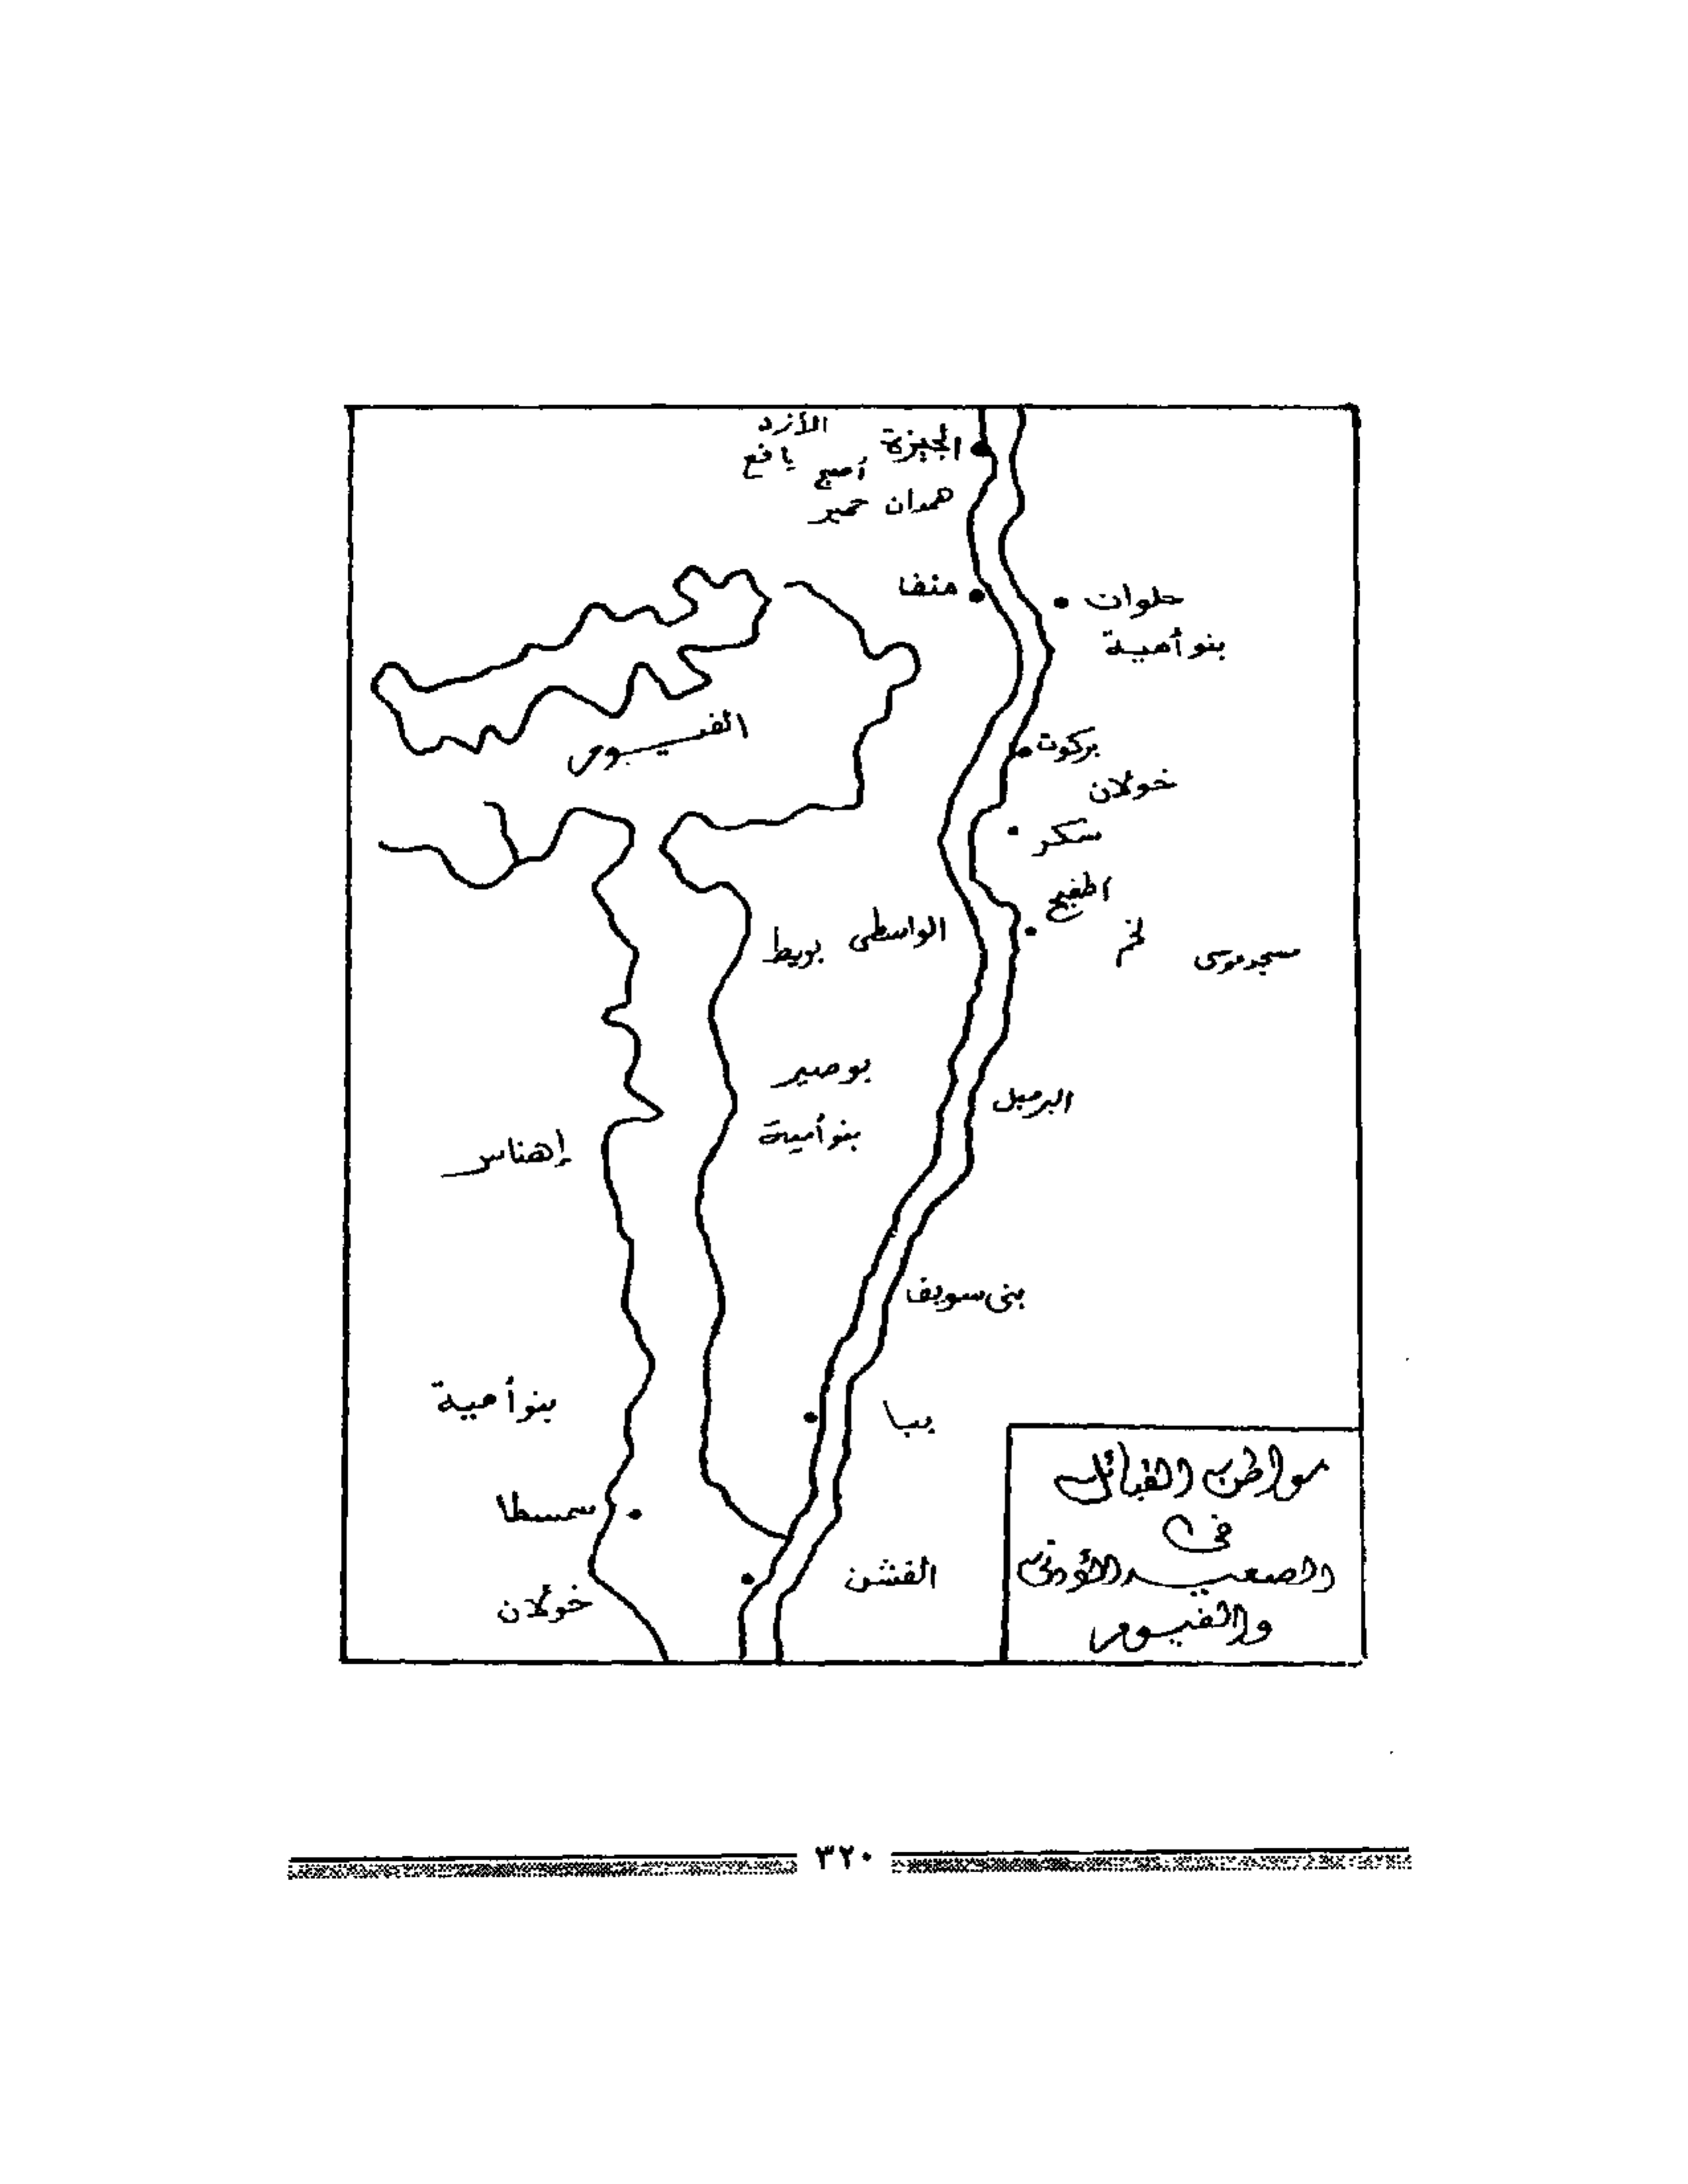 الأزد
الجيزة
يافع
أصبح
همدان حمير
منفا
حلوان
بنو أمية
الفيوم
بركوت
خولان
سكر
اطفيح
لخم
مسجد موسى
الواسطى
بويط
بوصير
بنو أمية
البرمبل
إهناس
بنى سويف
بنو أمية
ببا
سمسطا
الفشن
خولان
مواطن القبائل
فى
الصعيد الأدنى
والفيوم
٣٢٠